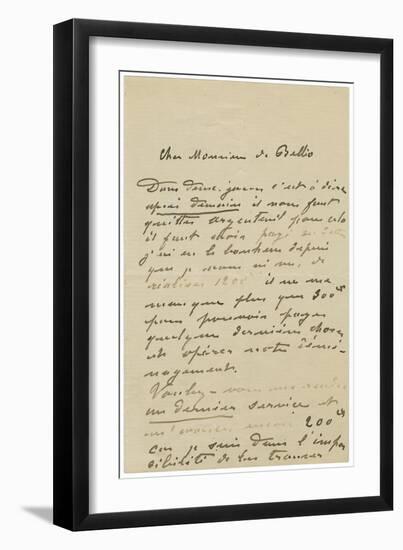 Cher Monsieur de Bellio
Dans deux jours c'est à dire
après demain il nous faut
quitter argenteuil pour cela
il faut avoir payé ses dettes
j'ai eu le bonheur depuis
que je vous ai vu, de
réaliser 1200 il ne me
manque plus que 300 f
pour pouvoir payer
quelques dernières choses
et opérer notre démé-
nagement.
Voulez-vous me rendre
un dernier service et
m'avancer encore 200 f
car je suis dans l'impos
sibilité de les trouver